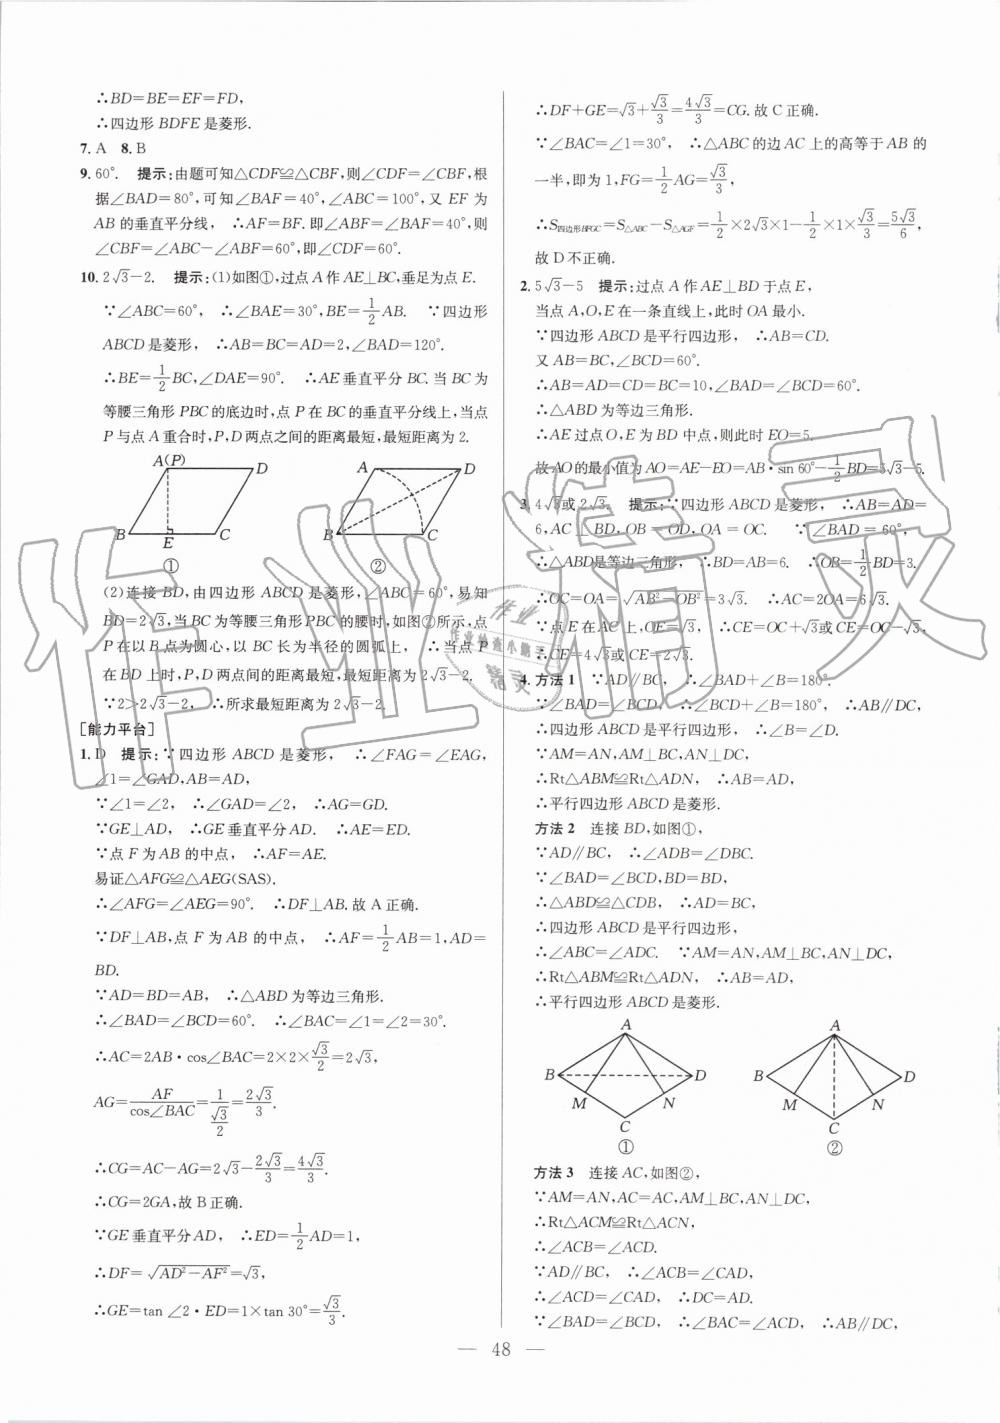 ∴BD=BE=EF=FD,
∴四边形 BDFE 是菱形.
7. A　8. B
9. 60°.　提示:由题可知△CDF≌△CBF,则∠CDF=∠CBF,根
据∠BAD=80°,可知∠BAF=40°,∠ABC=100°,又 EF 为
AB 的垂直平分线,　∴AF=BF.即∠ABF=∠BAF=40°,则
∠CBF=∠ABC-∠ABF=60°,即∠CDF=60°.
10. 2√3-2.　提示:(1)如图①,过点 A 作 AE⊥BC,垂足为点 E.
∵∠ABC=60°,　∴∠BAE=30°,BE=1/2AB.　∵四边形
ABCD 是菱形,　∴AB=BC=AD=2,∠BAD=120°.
∴BE=1/2BC,∠DAE=90°.　∴AE 垂直平分 BC.当 BC 为
等腰三角形 PBC 的底边时,点 P 在 BC 的垂直平分线上,当点
P 与点 A 重合时,P,D 两点之间的距离最短,最短距离为 2.
A(P) D B E C ①
A D B C ②
(2)连接 BD,由四边形 ABCD 是菱形,∠ABC=60°,易知
BD=2√3,当 BC 为等腰三角形 PBC 的腰时,如图②所示,点
P 在以 B 为圆心,以 BC 长为半径的圆弧上,　∴当点 P
在 BD 上时,P,D 两点间的距离最短,最短距离为 2√3-2.
∵2>2√3-2,　∴所求最短距离为 2√3-2.
[能力平台]
1. D　提示:∵四边形 ABCD 是菱形,　∴∠FAG=∠EAG,
∠1=∠GAD,AB=AD,
∵∠1=∠2,　∴∠GAD=∠2,　∴AG=GD.
∵GE⊥AD,　∴GE 垂直平分 AD.　∴AE=ED.
∵点 F 为 AB 的中点,　∴AF=AE.
易证△AFG≌△AEG(SAS).
∴∠AFG=∠AEG=90°.　∴DF⊥AB.故 A 正确.
∵DF⊥AB,点 F 为 AB 的中点,　∴AF=1/2AB=1,AD=
BD.
∵AD=BD=AB,　∴△ABD 为等边三角形.
∴∠BAD=∠BCD=60°.　∴∠BAC=∠1=∠2=30°.
∴AC=2AB·cos∠BAC=2×2×√3/2=2√3,
AG=AF/cos∠BAC=1/(√3/2)=2√3/3.
∴CG=AC-AG=2√3-2√3/3=4√3/3.
∴CG=2GA,故 B 正确.
∵GE 垂直平分 AD,　∴ED=1/2AD=1,
∴DF=√(AD²-AF²)=√3,
∴GE=tan∠2·ED=1×tan30°=√3/3.
∴DF+GE=√3+√3/3=4√3/3=CG.故 C 正确.
∵∠BAC=∠1=30°,　∴△ABC 的边 AC 上的高等于 AB 的
一半,即为 1,FG=1/2AG=√3/3,
∴S四边形BFGC=S△ABC-S△AGF=1/2×2√3×1-1/2×1×√3/3=5√3/6,
故 D 不正确.
2. 5√3-5　提示:过点 A 作 AE⊥BD 于点 E,
当点 A,O,E 在一条直线上,此时 OA 最小.
∵四边形 ABCD 是平行四边形,　∴AB=CD.
又 AB=BC,∠BCD=60°.
∴AB=AD=CD=BC=10,∠BAD=∠BCD=60°.
∴△ABD 为等边三角形.
∴AE 过点 O,E 为 BD 中点,则此时 EO=5.
故 AO 的最小值为 AO=AE-EO=AB·sin 60°-1/2BD=5√3-5.
3. 4√3或 2√3.　提示:∵四边形 ABCD 是菱形,　∴AB=AD=
6,AC⊥BD,OB=OD,OA=OC.　∵∠BAD=60°,
∴△ABD是等边三角形,　∴BD=AB=6.　∴OB=1/2BD=3.
∴OC=OA=√(AB²-OB²)=3√3.　∴AC=2OA=6√3.
∵点 E 在 AC 上,OE=√3,　∴CE=OC+√3或 CE=OC-√3,
∴CE=4√3或 CE=2√3.
4. 方法 1　∵AD∥BC,　∴∠BAD+∠B=180°.
∵∠BAD=∠BCD,　∴∠BCD+∠B=180°,　∴AB∥DC,
∴四边形 ABCD 是平行四边形,　∴∠B=∠D.
∵AM=AN,AM⊥BC,AN⊥DC,
∴Rt△ABM≌Rt△ADN,　∴AB=AD,
∴平行四边形 ABCD 是菱形.
方法 2　连接 BD,如图①,
∵AD∥BC,　∴∠ADB=∠DBC.
∵∠BAD=∠BCD,BD=BD,
∴△ABD≌△CDB,　∴AD=BC,
∴四边形 ABCD 是平行四边形,
∴∠ABC=∠ADC.　∵AM=AN,AM⊥BC,AN⊥DC,
∴Rt△ABM≌Rt△ADN,　∴AB=AD,
∴平行四边形 ABCD 是菱形.
A B D M N C ①
A B D M N C ②
方法 3　连接 AC,如图②,
∵AM=AN,AC=AC,AM⊥BC,AN⊥DC,
∴Rt△ACM≌Rt△ACN,
∴∠ACB=∠ACD.
∵AD∥BC,　∴∠ACB=∠CAD,
∴∠ACD=∠CAD,　∴DC=AD.
∵∠BAD=∠BCD,　∴∠BAC=∠ACD,　∴AB∥DC,
— 48 —
作业精灵
作业
作业检查小助手
精灵